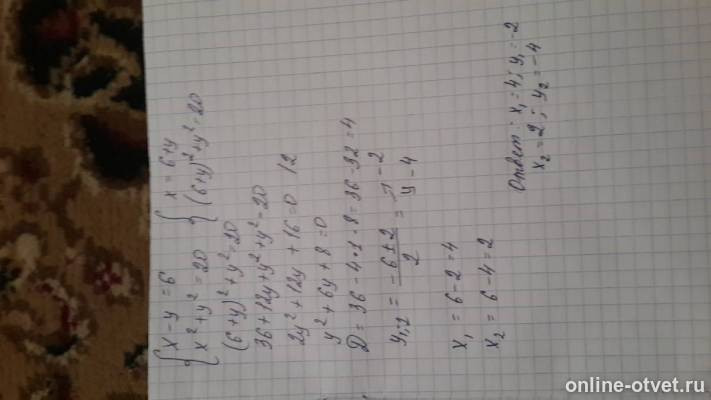 { x - y = 6
{ x² + y² = 20
{ x = 6+y
{ (6+y)² + y² = 20
(6+y)² + y² = 20
36 + 12y + y² + y² = 20
2y² + 12y + 16 = 0 | 2
y² + 6y + 8 = 0
D = 36 - 4 · 1 · 8 = 36 - 32 = 4
y₁,₂ = (-6 ± 2)/2 =
-2
-4
x₁ = 6 - 2 = 4
x₂ = 6 - 4 = 2
Ответ: x₁ = 4; y₁ = -2
x₂ = 2; y₂ = -4
online-otvet.ru